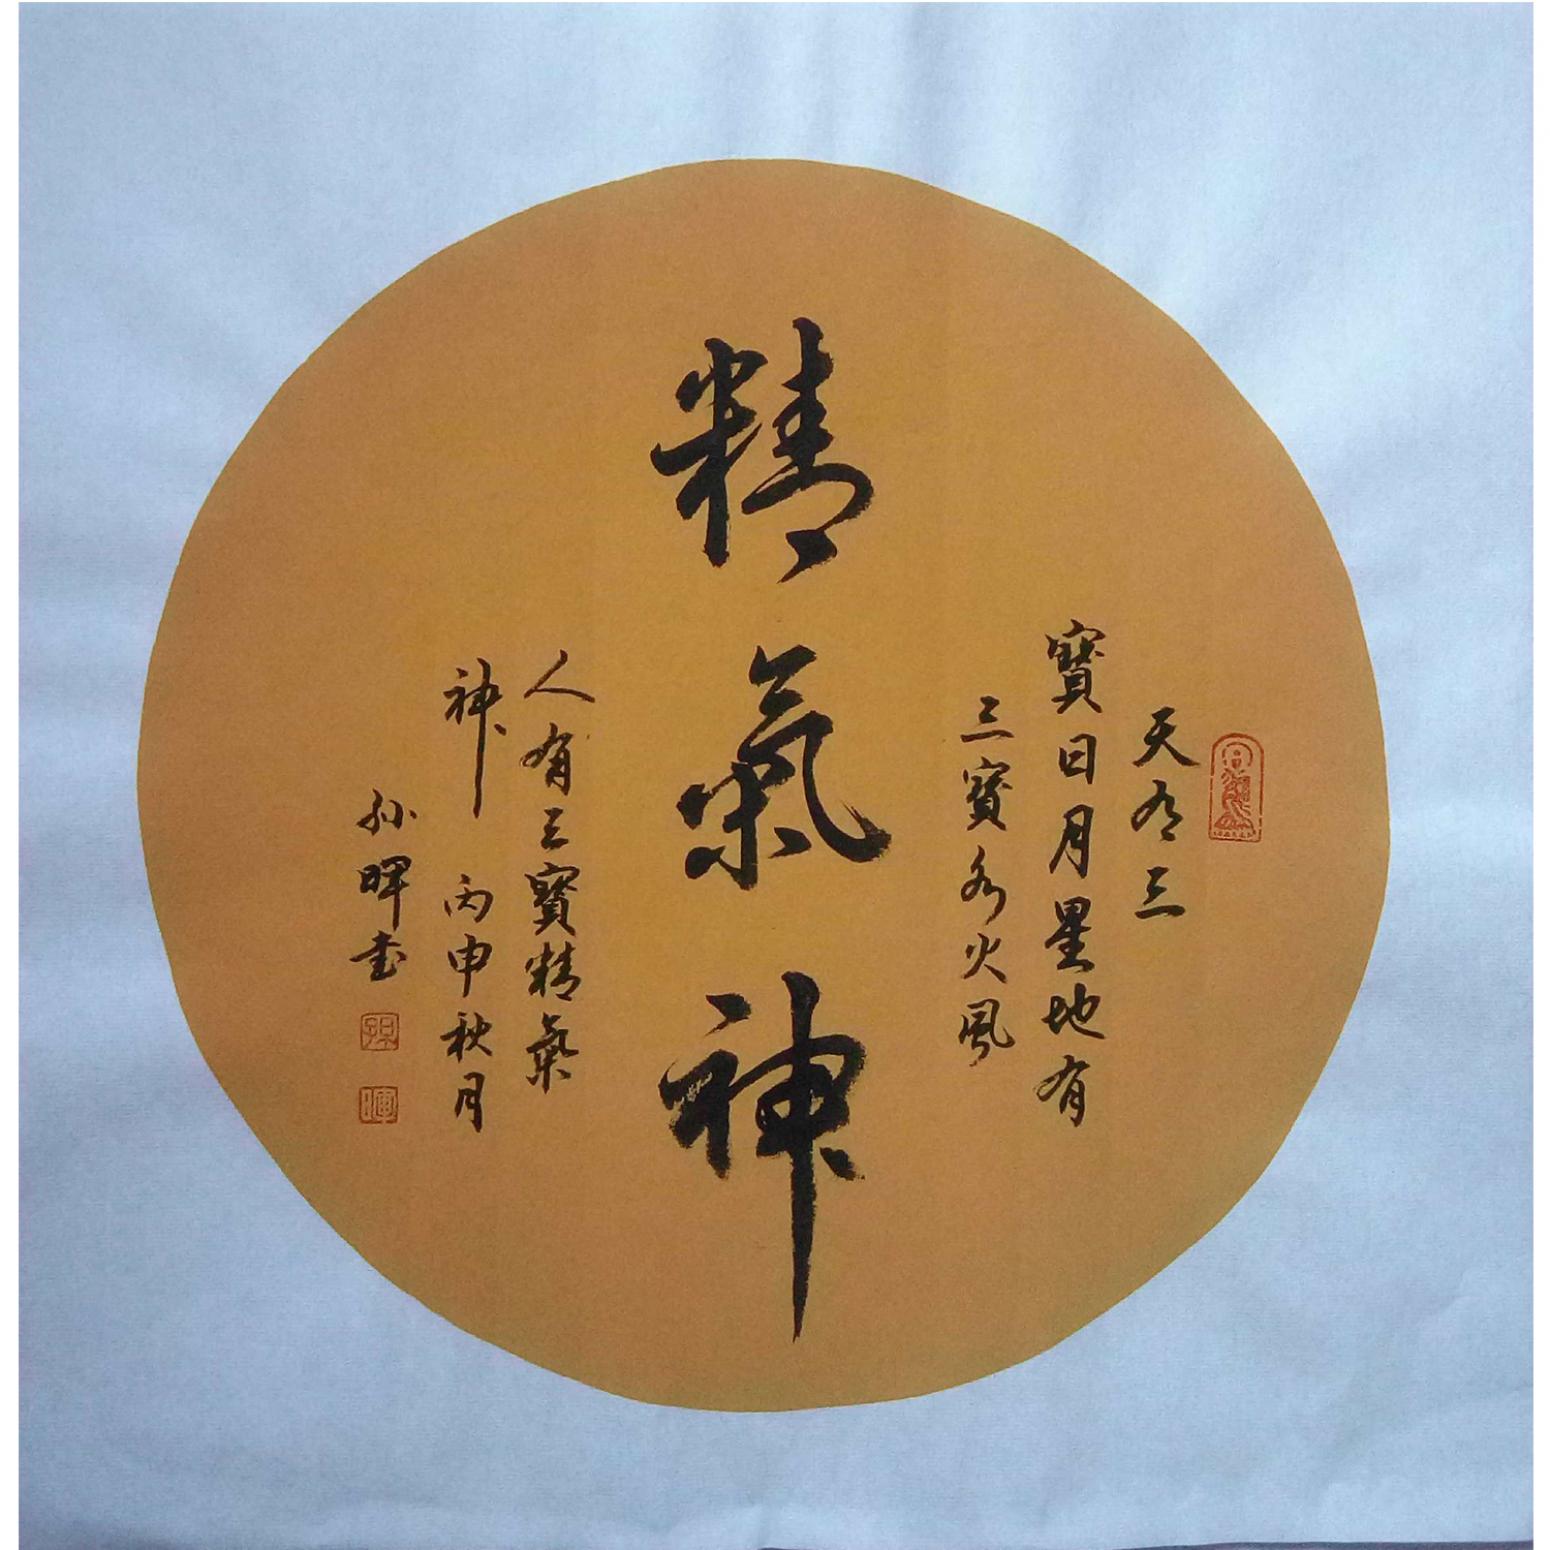 天有三
寳日月星地有
三寳水火風
精氣神
人有三寳精氣
神 丙申秋月
孙暉书